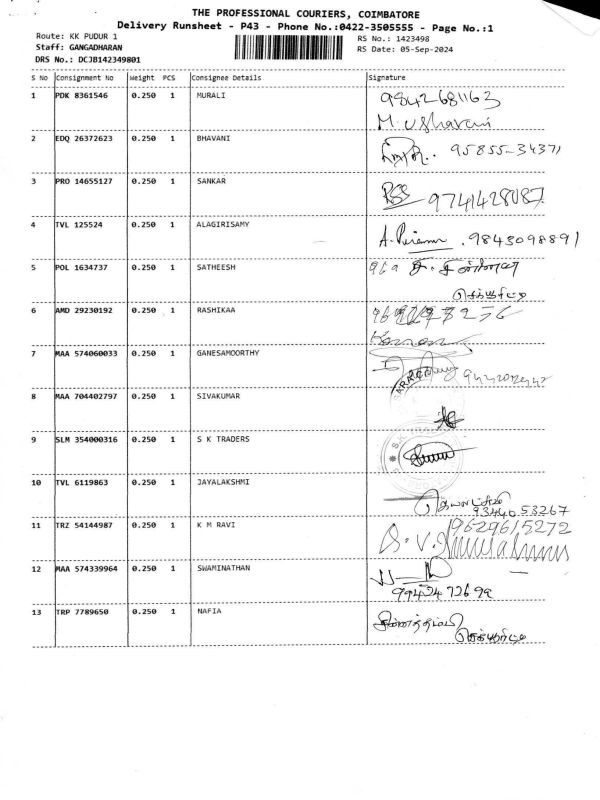 THE PROFESSIONAL COURIERS, COIMBATORE
Delivery Runsheet - P43 - Phone No.:0422-3505555 - Page No.:1
Route: KK PUDUR 1
RS No.: 1423498
Staff: GANGADHARAN
RS Date: 05-Sep-2024
DRS No.: DCJB142349801
S No Consignment No Weight PCS Consignee Details Signature
1 PDK 8361546 0.250 1 MURALI 9842681163
M. Ushavani
2 EDQ 26372623 0.250 1 BHAVANI 95855-34371
3 PRO 14655127 0.250 1 SANKAR RSS 9741428087
4 TVL 125524 0.250 1 ALAGIRISAMY 9843098891
5 POL 1634737 0.250 1 SATHEESH
செக்யூரிட்டி
6 AMD 29230192 0.250 1 RASHIKAA
7 MAA 574060033 0.250 1 GANESAMOORTHY
8 MAA 704402797 0.250 1 SIVAKUMAR
9 SLM 354000316 0.250 1 S K TRADERS
10 TVL 6119863 0.250 1 JAYALAKSHMI
9344053267
11 TRZ 54144987 0.250 1 K M RAVI 9629615272
12 MAA 574339964 0.250 1 SWAMINATHAN
13 TRP 7789650 0.250 1 NAFIA
செக்யூரிட்டி